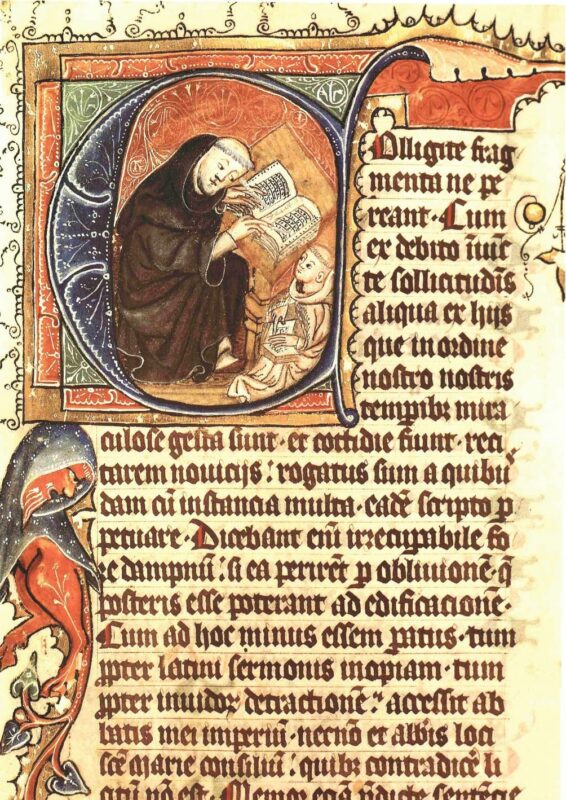 Colligite frag
menta ne pe
reant. Cum
ex debito iniūc
te sollicitudīs
aliqua ex hijs
que in ordine
nostro nostris
temꝑibꝫ mira
culose gesta sunt. et cottidie fiunt. reci
tarem novicijs: rogatus sum a quibu
dam cū instancia multa. eadē scripto ꝑ
petuare. Dicebant enī irrecupabile fo
re dampnū: si ea perirēt ꝑ oblivionē q̄
posteris esse poterant ad edificationē.
Cum ad hoc minus essem ꝑatus. tum
ꝓpter latini sermonis inopiam. tum
ꝓpter invidoꝝ detractionē: accessit ab
batis mei imperiū. necnō et abb̄is loci
scē marie consiliū: quibꝫ contradicē li
citū nō est. Memor eciā p̄dicte sentēcie